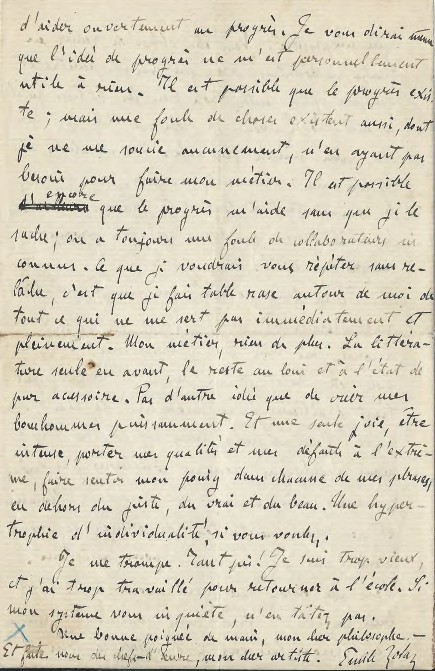 d'aider ouvertement au progrès. Je vous dirai même
que l'idée de progrès ne m'est personnellement
utile à rien. Il est possible que le progrès exis-
te ; mais une foule de choses existent aussi, dont
je ne me soucie aucunement, n'en ayant pas
besoin pour faire mon métier. Il est possible
encore que le progrès m'aide sans que je le
sache ; on a toujours une foule de collaborateurs in
connus. Ce que je voudrais vous répéter sans re-
lâche, c'est que je fais table rase autour de moi de
tout ce qui ne me sert pas immédiatement et
pleinement. Mon métier, rien de plus. La littéra-
ture seule en avant, le reste au loin et à l'état de
pur accessoire. Pas d'autre idée que de créer mes
bonshommes puissamment. Et une seule joie, être
intense, porter mes qualités et mes défauts à l'extrê-
me, faire sentir mon poing dans chacune de mes phrases,
en dehors du juste, du vrai et du beau. Une hyper-
trophie d'individualité, si vous voulez.
Je me trompe. Tant pis ! Je suis trop vieux,
et j'ai trop travaillé pour retourner à l'école. Si
mon système vous inquiète, n'en tâtez pas.
Une bonne poignée de main, mon cher philosophe. –
Et faites nous des chefs-d'œuvre, mon cher artiste
Emile Zola